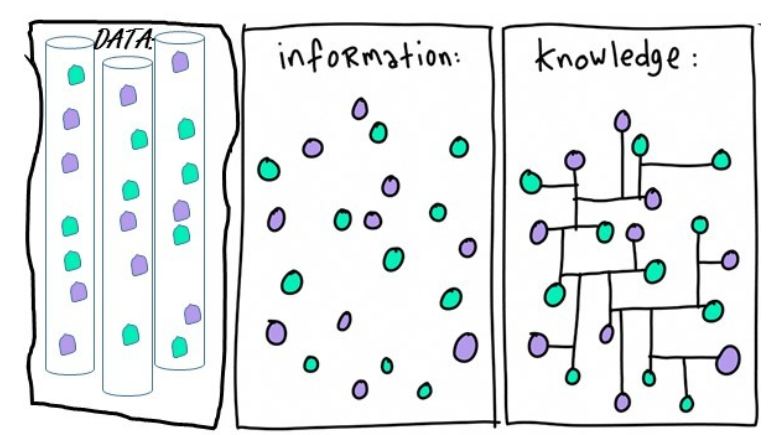 DATA:
information:
knowledge: